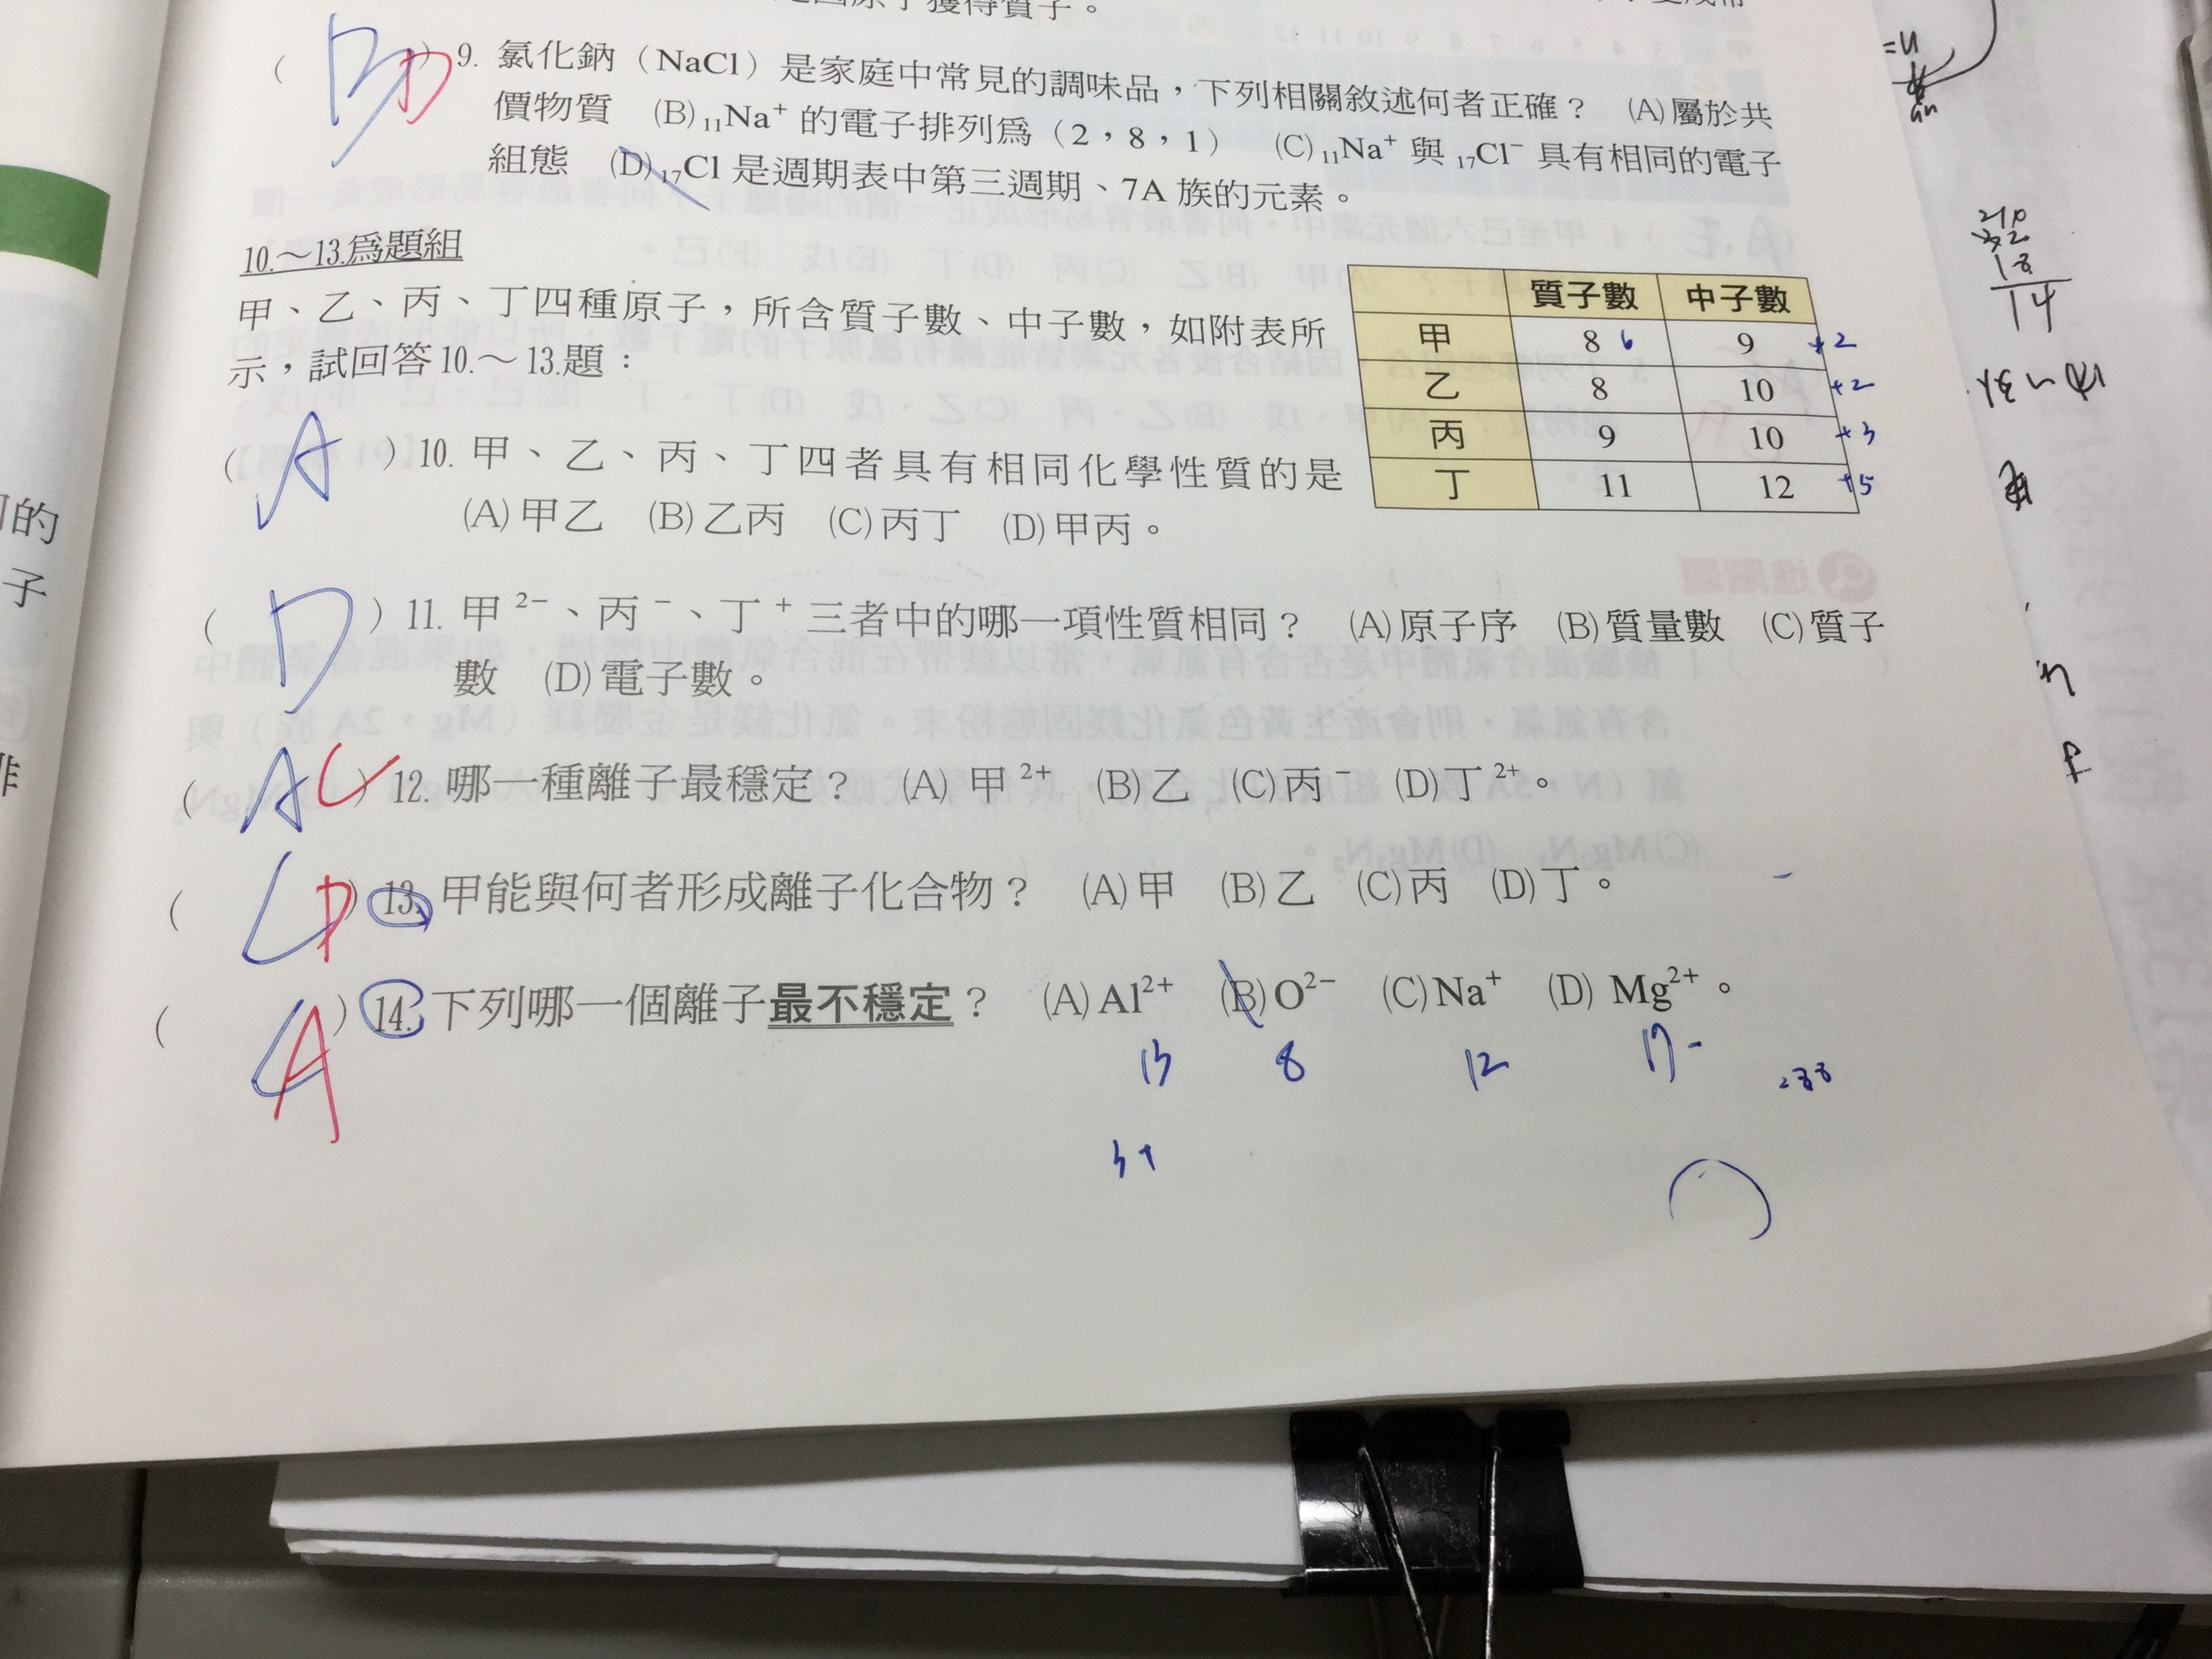 獲得質子。
( BD ) 9. 氯化鈉（NaCl）是家庭中常見的調味品，下列相關敘述何者正確？ (A)屬於共
價物質 (B)₁₁Na⁺ 的電子排列為（2，8，1） (C)₁₁Na⁺ 與 ₁₇Cl⁻ 具有相同的電子
組態 (D)₁₇Cl 是週期表中第三週期、7A 族的元素。
10.～13.為題組
甲、乙、丙、丁四種原子，所含質子數、中子數，如附表所
示，試回答10.～13.題：
質子數 中子數
甲 8 6 9 +2
乙 8 10 +2
丙 9 10 +3
丁 11 12 +5
( A ) 10. 甲、乙、丙、丁四者具有相同化學性質的是
(A)甲乙 (B)乙丙 (C)丙丁 (D)甲丙。
( D ) 11. 甲²⁻、丙⁻、丁⁺三者中的哪一項性質相同？ (A)原子序 (B)質量數 (C)質子
數 (D)電子數。
( A C ) 12. 哪一種離子最穩定？ (A) 甲²⁺ (B)乙 (C)丙⁻ (D)丁²⁺。
( C D ) 13. 甲能與何者形成離子化合物？ (A)甲 (B)乙 (C)丙 (D)丁。
( C A ) 14. 下列哪一個離子最不穩定？ (A)Al²⁺ (B)O²⁻ (C)Na⁺ (D) Mg²⁺。
13 8 12 17-
288
3+
18
14
的
子